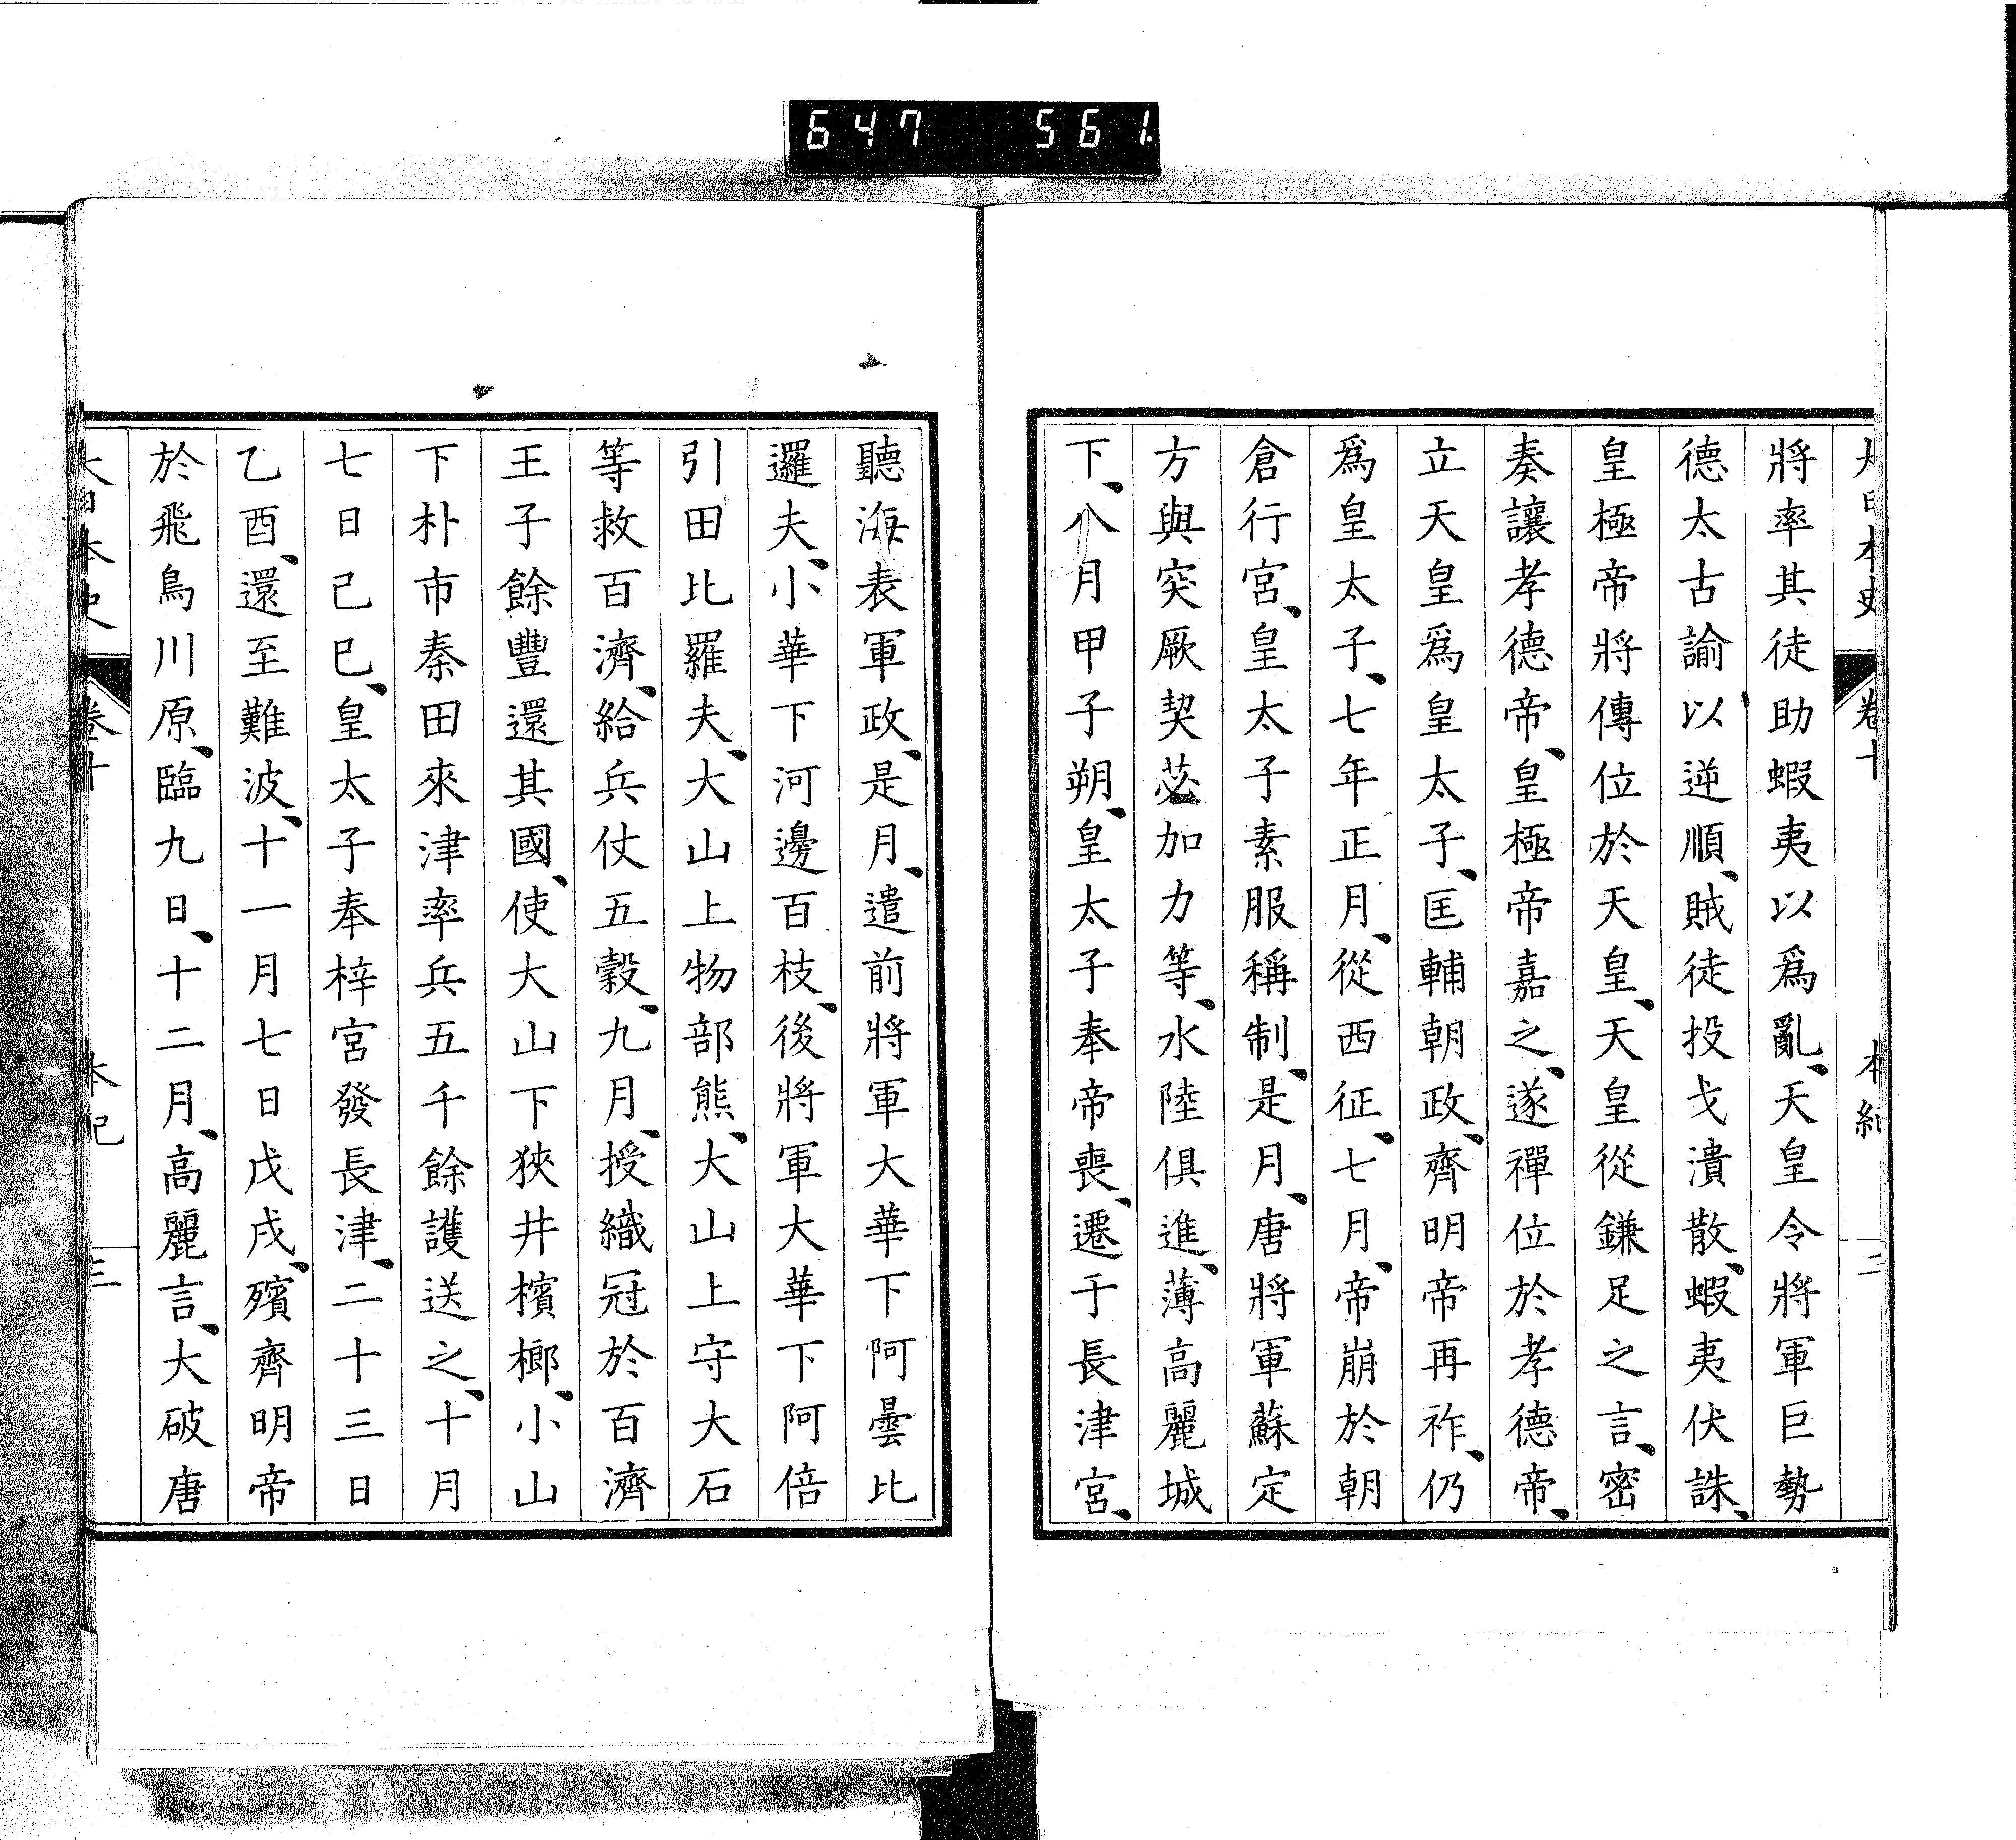 647 561.
大日本史 卷十 本紀 二
將率其徒助蝦夷以爲亂、天皇令將軍巨勢
德太古諭以逆順、賊徒投戈潰散、蝦夷伏誅、
皇極帝將傳位於天皇、天皇從鎌足之言、密
奏讓孝德帝、皇極帝嘉之、遂禪位於孝德帝、
立天皇爲皇太子、匡輔朝政、齊明帝再祚、仍
爲皇太子、七年正月、從西征、七月、帝崩於朝
倉行宮、皇太子素服稱制、是月、唐將軍蘇定
方與突厥契苾加力等、水陸俱進、薄高麗城
下、八月甲子朔、皇太子奉帝喪、遷于長津宮、
聽海表軍政、是月、遣前將軍大華下阿曇比
邏夫、小華下河邊百枝、後將軍大華下阿倍
引田比羅夫、大山上物部熊、大山上守大石
等救百濟、給兵仗五穀、九月、授織冠於百濟
王子餘豐還其國、使大山下狹井檳榔、小山
下朴市秦田來津率兵五千餘護送之、十月
七日己巳、皇太子奉梓宮發長津、二十三日
乙酉、還至難波、十一月七日戊戌、殯齊明帝
於飛鳥川原、臨九日、十二月、高麗言、大破唐
大日本史 卷十 本紀 三